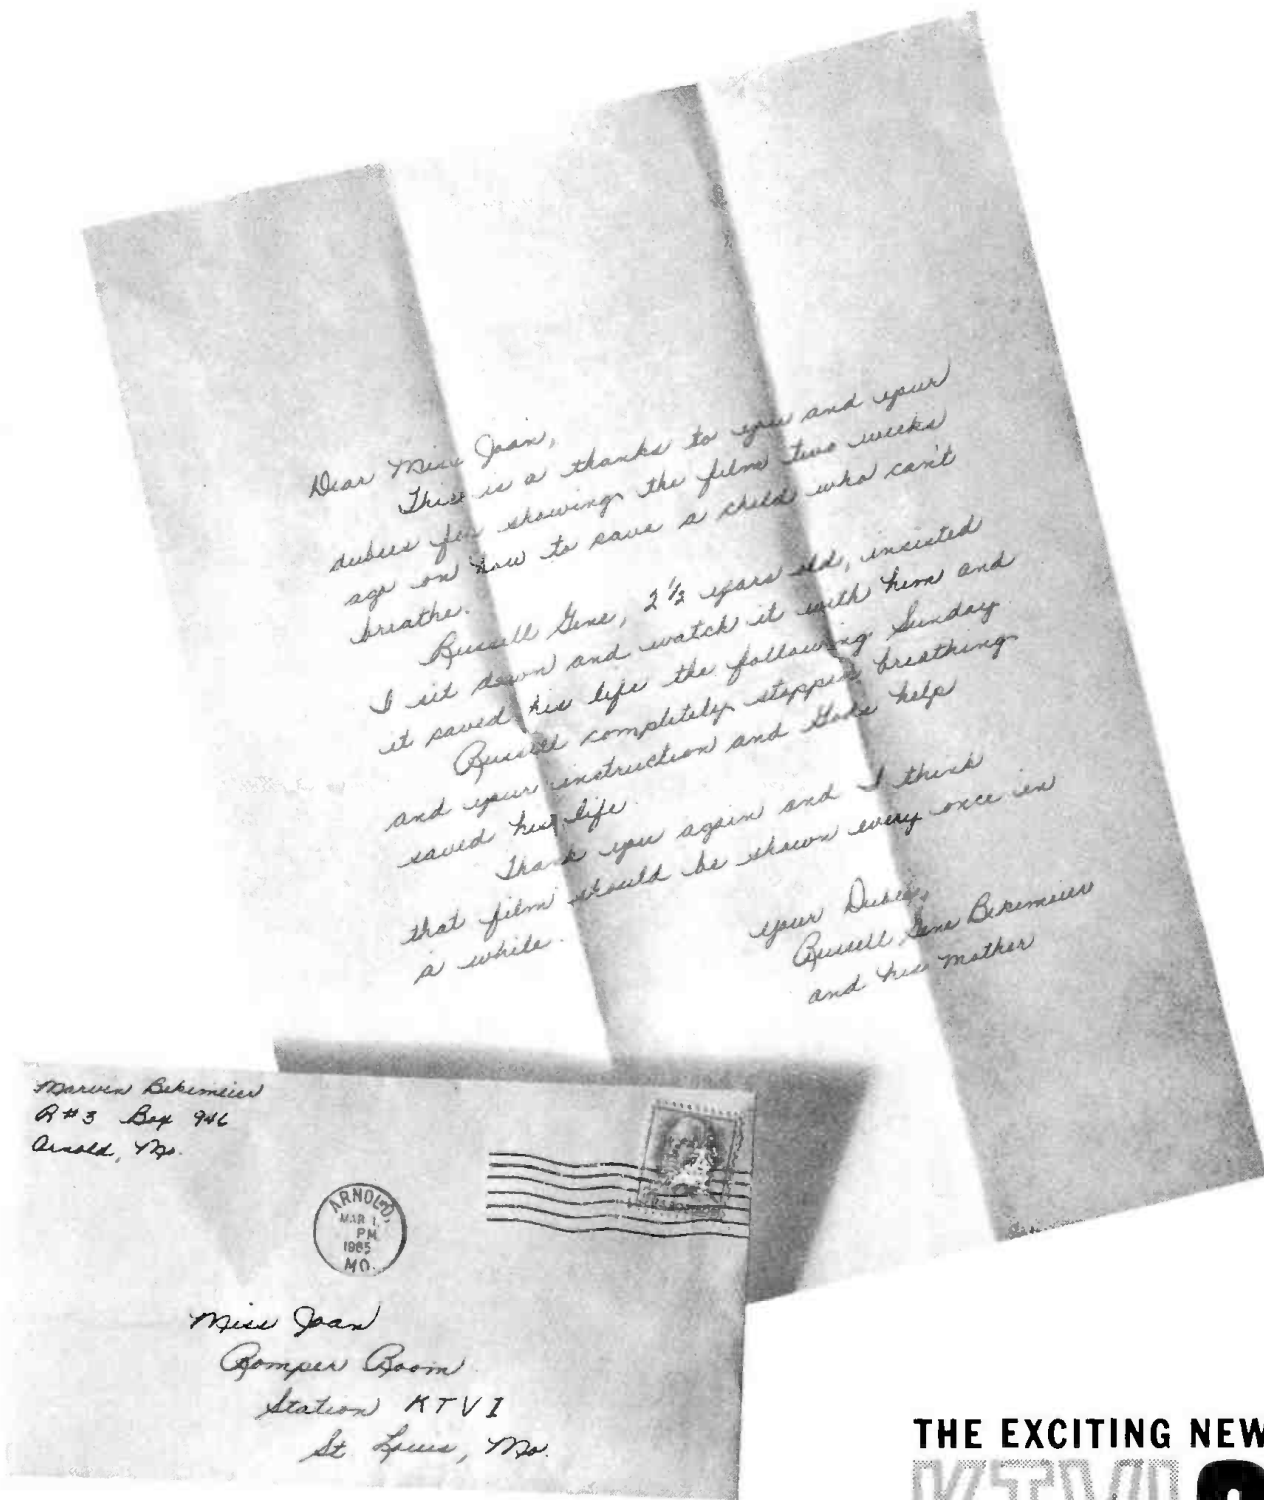 Dear Miss Joan,
This is a thanks to you and your
dubees for showing the film two weeks
ago on how to save a child who can't
breathe.
Russell Gene, 2 1/2 years old, insisted
I sit down and watch it with him and
it saved his life the following Sunday
Russell completely stopped breathing
and your instruction and Gods help
saved his life.
Thank you again and I think
that film should be shown every once in
a while.
your Dubee,
Russell Gene Bekemeier
and his mother
Marvin Bekemeier
R#3 Box 946
Arnold, Mo.
ARNOLD,
MAR 1,
PM
1965
MO.
Miss Joan
Romper Room
Station KTVI
St. Louis, Mo.
THE EXCITING NEW
KTVI